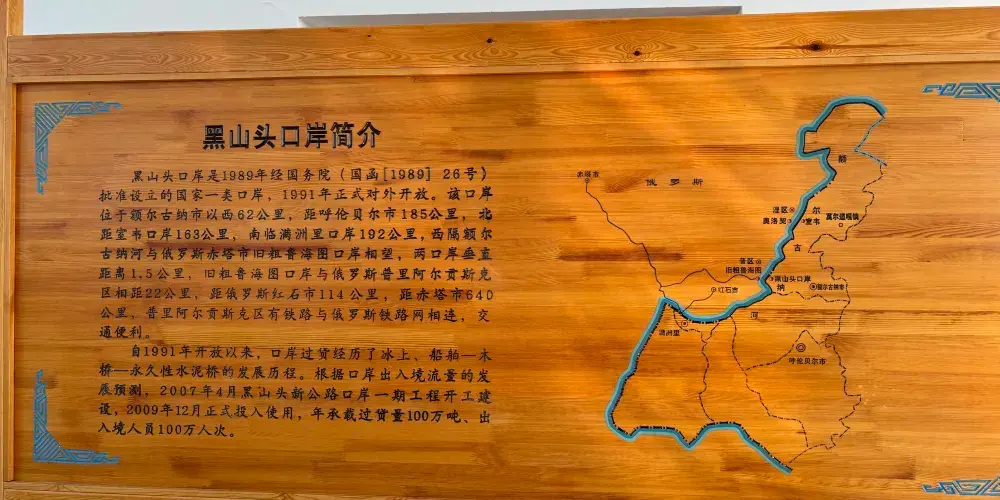 黑山头口岸简介
黑山头口岸是1989年经国务院（国函[1989] 26号）
批准设立的国家一类口岸，1991年正式对外开放。该口岸
位于额尔古纳市以西62公里，距呼伦贝尔市185公里，北
距室韦口岸163公里，南临满洲里口岸192公里，西隔额尔
古纳河与俄罗斯赤塔市旧粗鲁海图口岸相望，两口岸垂直
距离1.5公里，旧粗鲁海图口岸与俄罗斯普里阿尔贡斯克
区相距22公里，距俄罗斯红石市114公里，距赤塔市640
公里，普里阿尔贡斯克区有铁路与俄罗斯铁路网相连，交
通便利。
自1991年开放以来，口岸过货经历了冰上、船舶—木
桥—永久性水泥桥的发展历程。根据口岸出入境流量的发
展预测，2007年4月黑山头新公路口岸一期工程开工建
设，2009年12月正式投入使用，年承载过货量100万吨、出
入境人员100万人次。
赤塔市
俄罗斯
额
尔
古
纳
河
涅区
奥洛契
室韦
莫尔道嘎镇
普区
旧粗鲁海图
黑山头口岸
额尔古纳市
红石市
满洲里
呼伦贝尔市